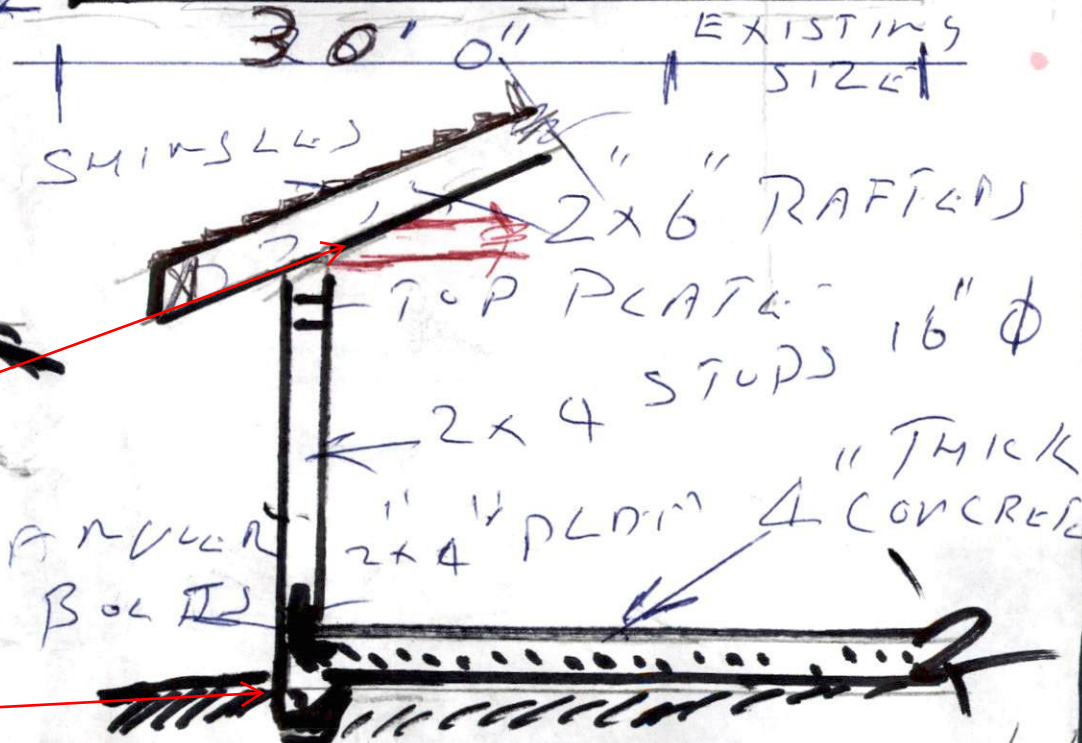 30' 0"
EXISTING
SIZE
SHINGLES
2" x 6" RAFTERS
TOP PLATE
2 x 4 STUDS 16" ϕ
4" THICK
CONCRETE
2" x 4" PLATE
BOLTS